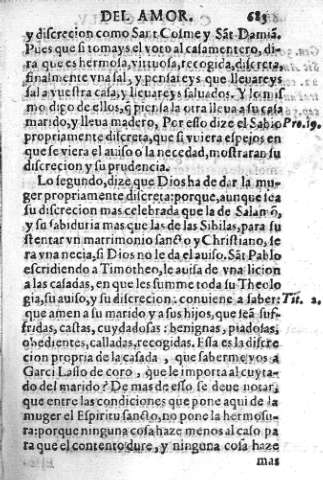 DEL AMOR. 683
y discrecion como Sant Cosme y Sãt Damiã.
Pues que si tomays el voto al casamentero, di-
ra que es hermosa, virtuosa, recogida, discreta,
finalmente vna sal, y pensareys que lleuareys
sal a vuestra casa, y lleuareys saluados. Y lo mis
mo digo de ellos, q̃ piensa la otra lleua a su casa
marido, y lleua madero, Por esso dize el Sabio Pro.19.
propriamente discreta, que si vuiera espejos en
que se viera el auiso o la necedad, mostraran su
discrecion y su prudencia.
Lo segundo, dize que Dios ha de dar la mu-
ger propriamente discreta: porque, aunque sea
su discrecion mas celebrada que la de Salamõ,
y su sabiduria mas que las de las Sibilas, para su
stentar vn matrimonio sancto y Christiano, se
ra vna necia, si Dios no le da el auiso. Sãt Pablo
escriuiendo a Timotheo, le auisa de vna licion
a las casadas, en que les summe toda su Theolo
gia, su auiso, y su discrecion: conuiene a saber: Tit. 2.
que amen a su marido y a sus hijos, que seã suf-
fridas, castas, cuydadosas: benignas, piadosas,
obedientes, calladas, recogidas. Essa es la discre
cion propria de la casada, que saber meyos a
Garci Lasso de coro, que le importa al cuyta-
do del marido? De mas de esso se deue notar,
que entre las condiciones que pone aqui de la
muger el Espiritu sancto, no pone la hermosu-
ra: porque ninguna cosa haze menos al caso pa
ra que el contento dure, y ninguna cosa haze
mas